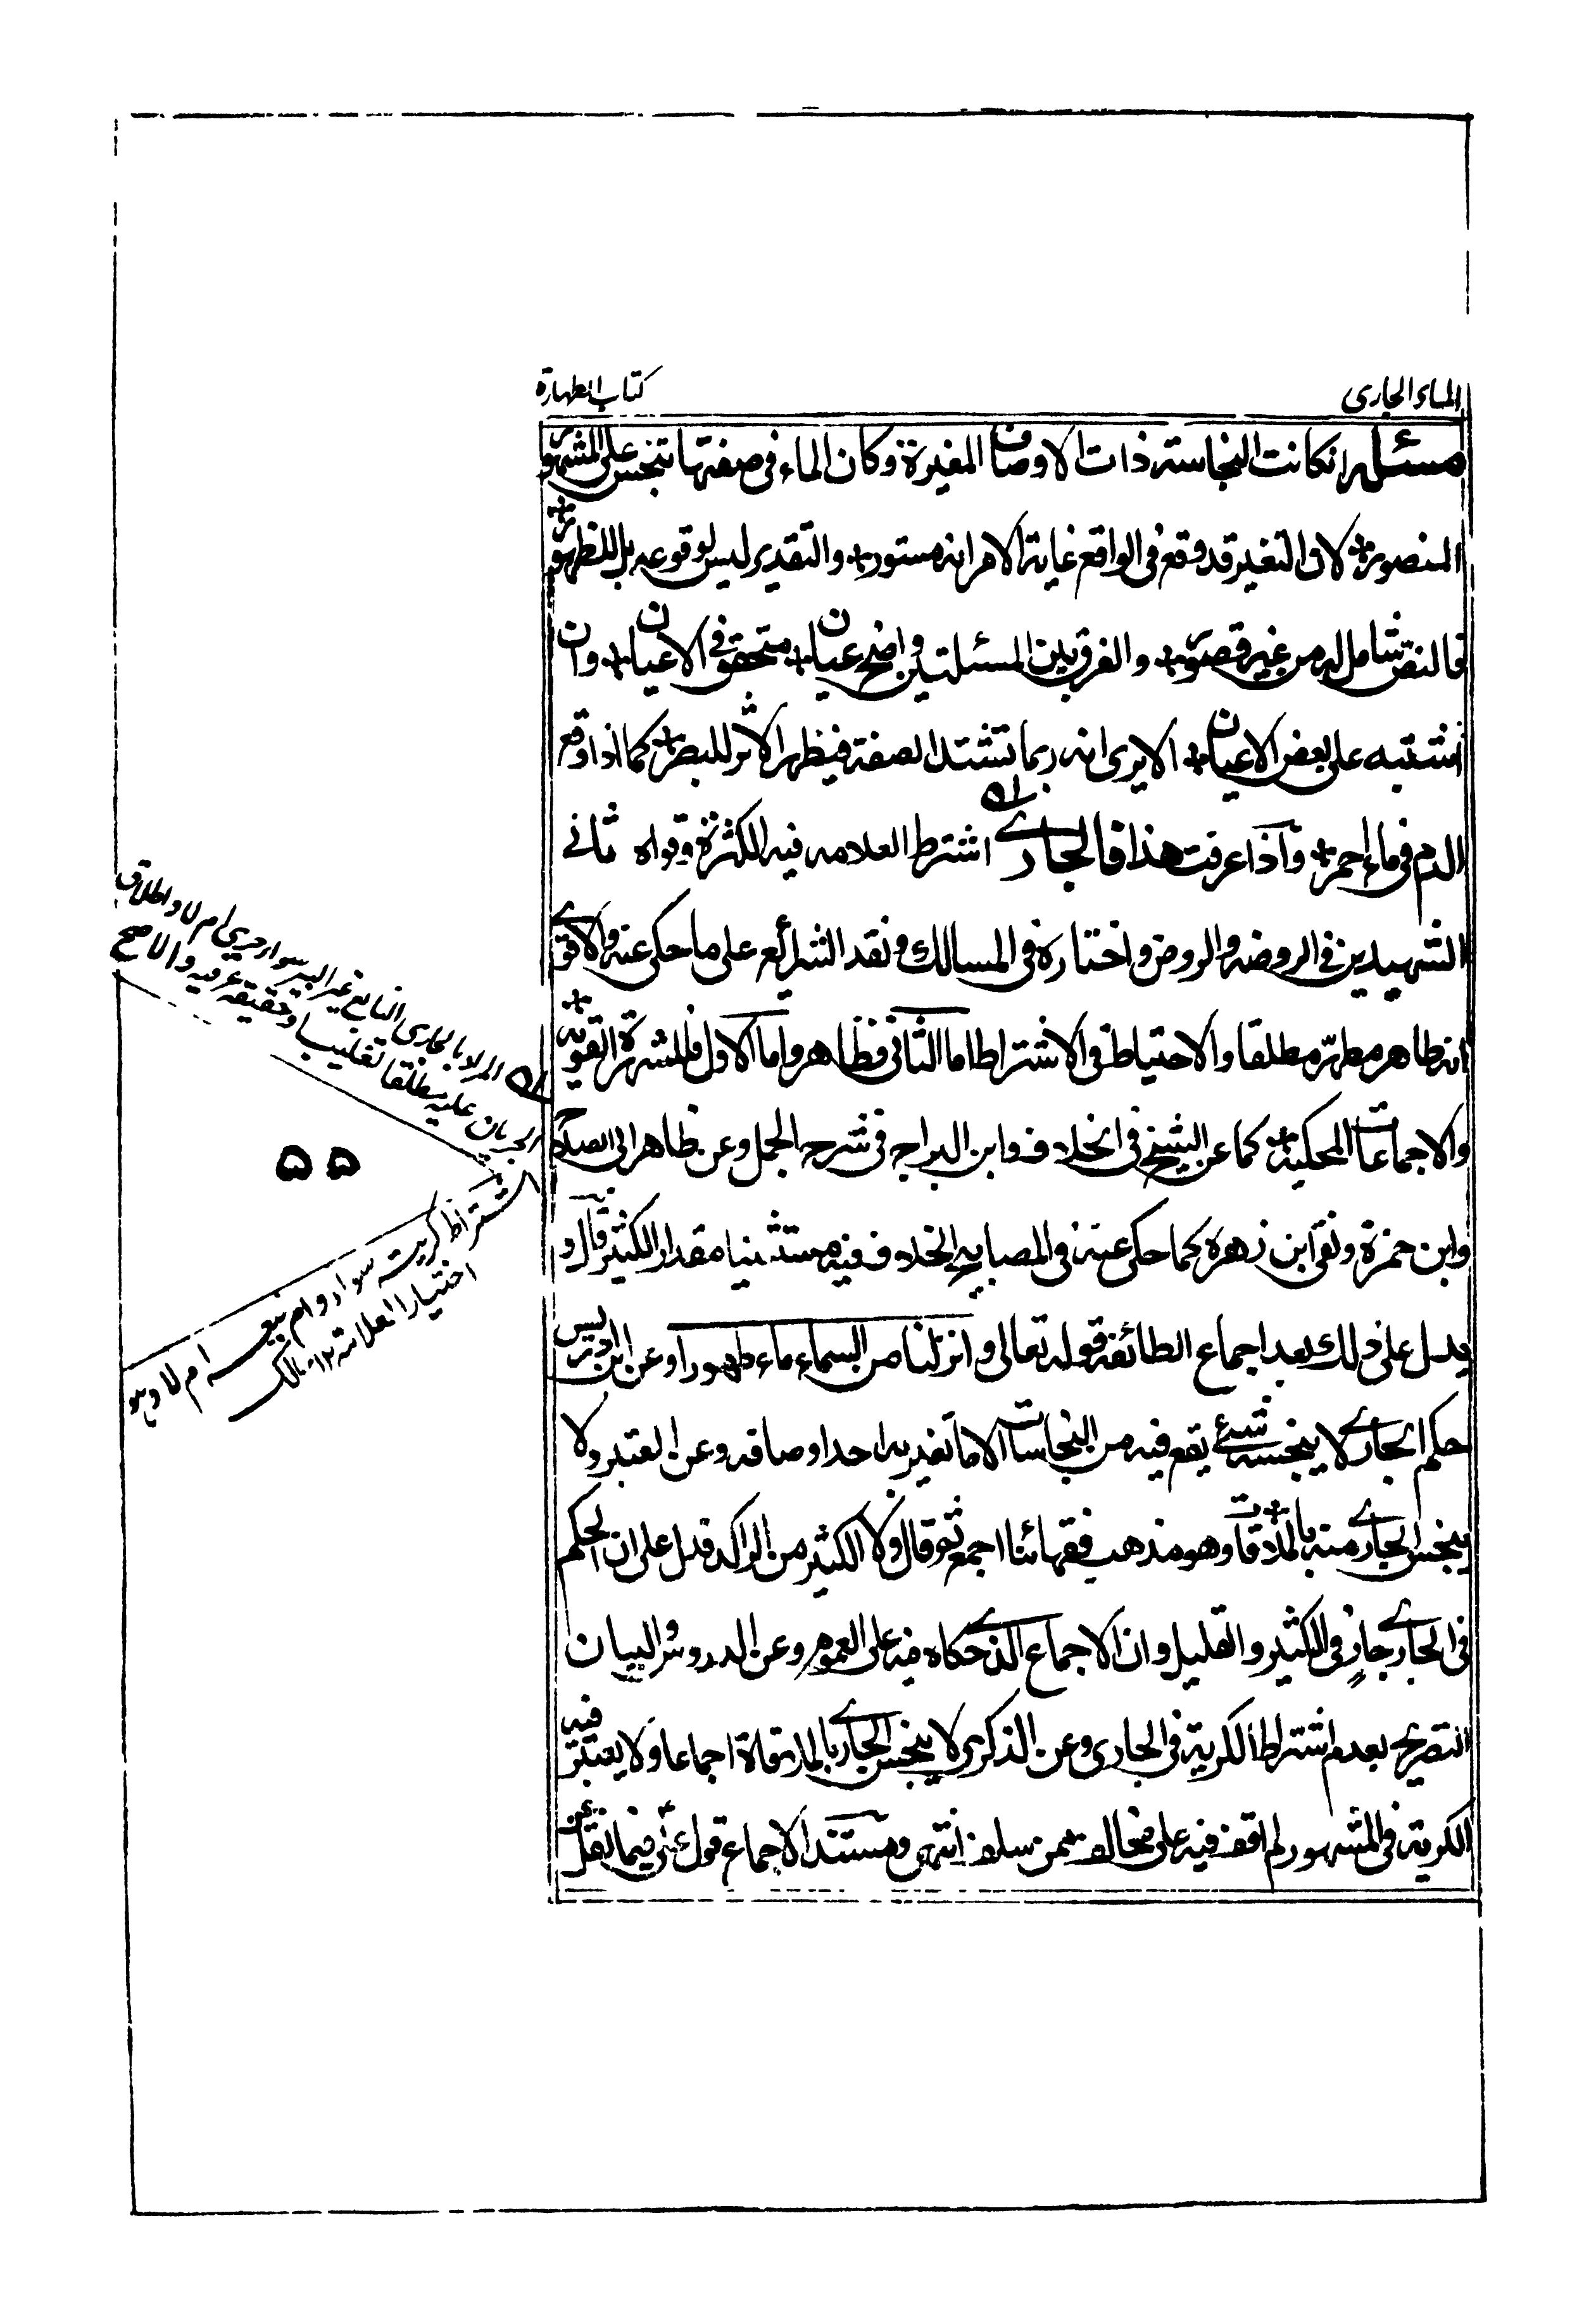 الماء الجاري
كتاب الطهارة
مسئلة ان كانت النجاسة ذات الاوصاف المغيرة وكان الماء في صفتها تنجس على المشهور
المنصور لان التغير قد وقع في الواقع غاية الامر انه مستور والتقدير ليس لوقوعه بل للظهور
فالنص شامل له من غير قصور والفرق بين المسئلتين واضح عيان متحقق في الاعيان وان
اشتبه على بعض الاعيان الا يرى انه ربما تشتد الصفة فيظهر الاثر للبصر كما اذا وقع
الدم في ماء احمر واذا عرفت هذا فالجاري اشترط العلامه فيه الكثرة وقواه ثاني
الشهيدين في الروضه والروض واختاره في المسالك ونقد الشرائع على ما حكي عنه والاقوى
انه طاهر مطهّر مطلقا والاحتياط في الاشتراط اما الثاني فظاهر واما الاول فللشهرة القويه
والاجماعات المحكية كما عن الشيخ في الخلاف وابن البراج في شرح الجمل وعن ظاهر ابي الصلاح
وابن حمزة ونفى ابن زهره كما حكى عنه في المصابيح الخلاف فيه مستثنيا مقدار الكثير قال و
يدل على ذلك بعد اجماع الطائفة قوله تعالى وانزلنا من السماء ماء طهورا وعن ابن ادريس
حكم الجاري لا ينجسه شيئ يقع فيه من النجاسات الا ما تغير به احد اوصافه وعن المعتبر ولا
ينجس الجاري منه بالملاقات وهو مذهب فقهائنا اجمع ثم قال ولا الكثير من الراكد فدل على ان الحكم
في الجاري جارٍ في الكثير والقليل وان الاجماع الذي حكاه فيه على العموم وعن الدروس والبيان
التصريح بعدم اشتراط الكرية في الجاري وعن الذكرى لا ينجس الجاري بالملاقاة اجماعا ولا يعتبر فيه
الكرية في المشهور لم اقف فيه على مخالف ممن سلف انتهى ومستند الاجماع قول فيما نقل عن
المراد بالجاري النابع غير البير سواء جرى ام لا واطلاق
الجريان عليه مطلقا تغليب او حقيقه عرفيه والاصح
اشتراط كريته سواء دوام نبعه ام لا وهو
اختيار العلامة ١٢ مسالك
۵۵